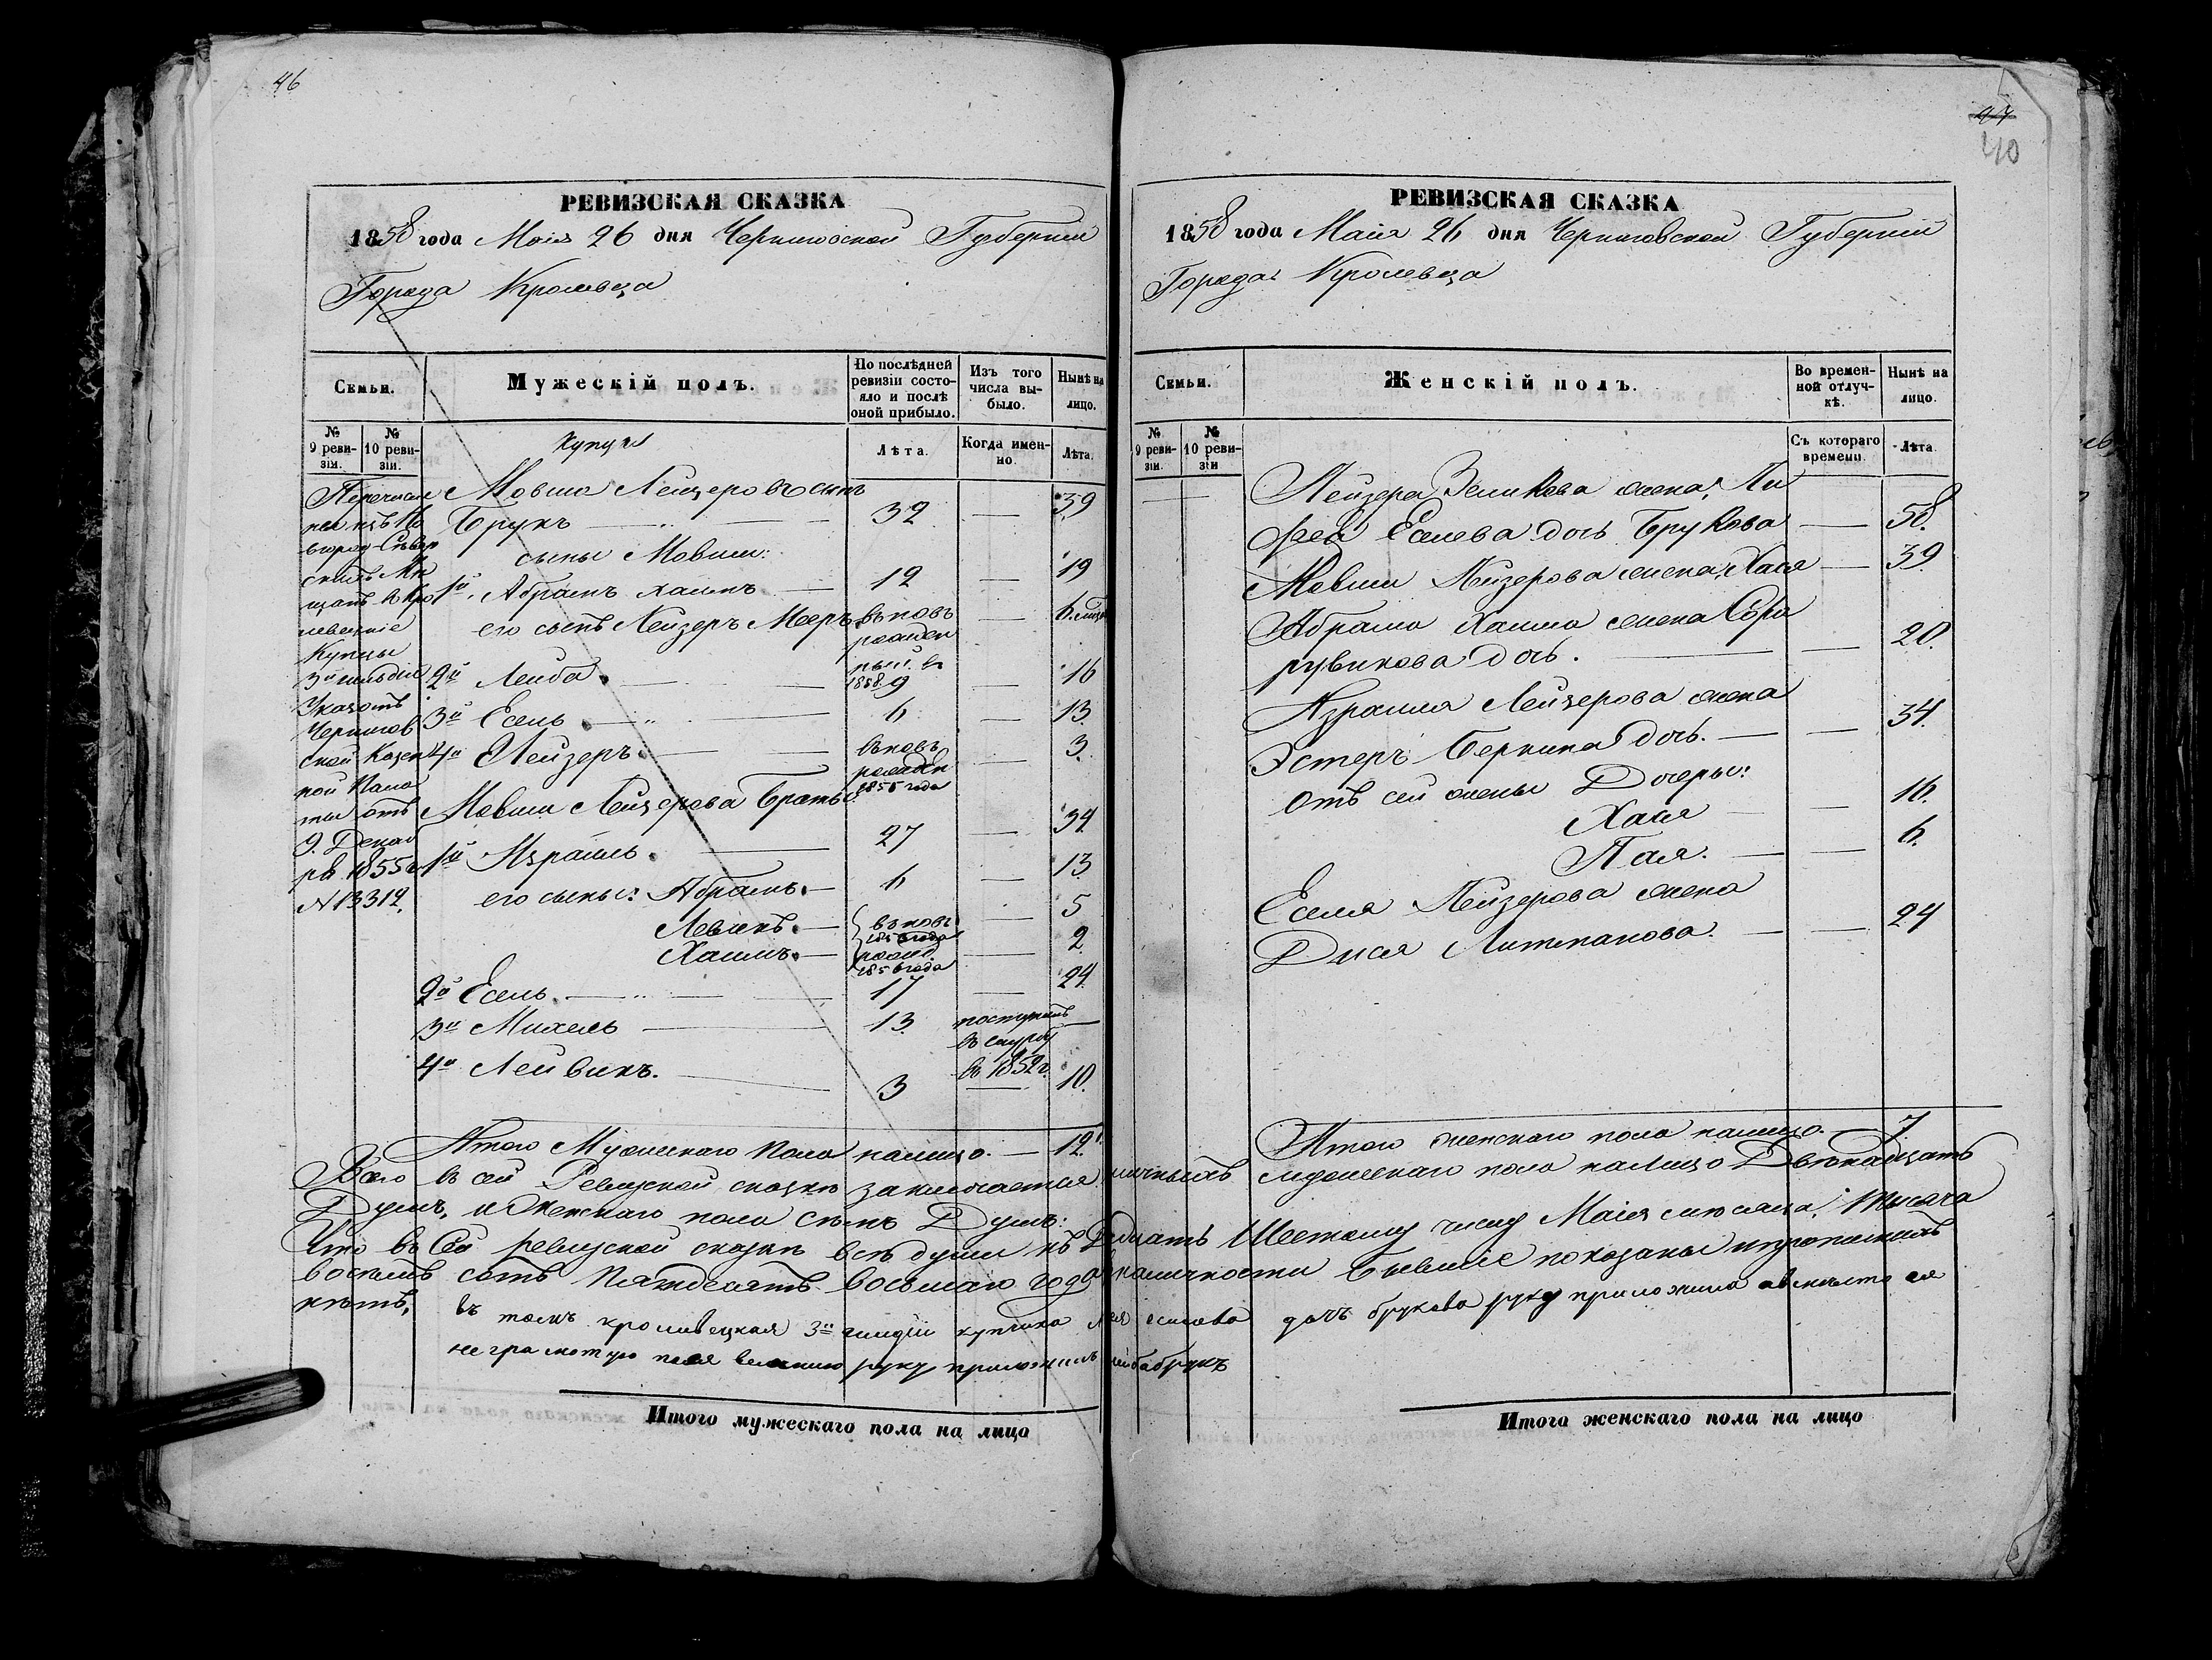 46
РЕВИЗСКАЯ СКАЗКА
1858 года Маія 26 дня Черниговской Губерніи
Города Кролевца
Семьи.
Мужескій полъ.
По послѣдней ревизіи состояло и послѣ оной прибыло.
Изъ того числа выбыло.
Нынѣ на лицо.
№ 9 ревизіи.
№ 10 ревизіи.
Лѣта.
Когда именно.
Лѣта.
Перечислен
ны изъ Но
вгород-Север
скихъ Мѣ
щанъ в Кро
левецкіе
Купцы
3й гильдіи
Указомъ
Чернигов
ской Казен
ной Пала
ты отъ
9. Декаб
ря 1855 г.
№ 13312.
Купцы
Мовша Лейзеровъ сынъ
Брукъ 32 39
сыны Мовши:
1й Абрамъ Хаимъ 12 19
его сынъ Лейзеръ Мееръ въновь рожден ный в 1858. 6. мѣся
2й Лейба 9 16
3й Есель 6 13.
4й Лейзеръ въновь рожден 1855 года 3.
Мовши Лейзерова Братья:
1й Израиль 27 34
его сыны: Абрамъ 6 13
Левикъ въновь 5
Хаимъ рожд. 1856 года 2
2й Есель 17 24
3й Михель 13. поступилъ въ службу в 1852 г.
4й Лейвикъ. 3 10.
Итого Мужескаго Пола налицо. 12.
РЕВИЗСКАЯ СКАЗКА
1858 года Маія 26 дня Черниговской Губерніи
Города Кролевца
47
40
Семьи.
Женскій полъ.
Во временной отлучкѣ.
Нынѣ на лицо.
№ 9 ревизіи.
№ 10 ревизіи
Съ котораго времени.
Лѣта
Лейзера Зеликова жена, Ли
Еселева дочь Брукова 58.
Мовши Лейзерова жена, Хася 39.
Абрама Хаима жена Сора
рувинова дочь. 20.
Израиля Лейзерова жена
Эстеръ Беркина дочь. 34.
отъ сей жены Дочеры:
Хая 16.
Пая. 6.
Еселя Лейзерова жена
Дися Литманова. 24
Итого женскаго пола налицо. 7
Всего въ сей Ревизской сказкѣ заключается личныхъ мужескаго пола налицо Двѣнадцать
Душъ, и Женскаго пола Семь Душъ:
Что въ Сей ревизской сказкѣ всѣ души къ Двадцать Шестому числу Маія мѣсяца, тысяча
восемь сотъ Пятдесятъ восьмаго года въ наличности бывшіе показаны и пропискныхъ
нѣтъ,
въ томъ кролевецкая 3й гилдіи купчиха Лея еселова дочъ брукова руку приложила авмѣсто ея
неграмотную поея велению руку приложилъ лейба брукъ
Итого мужескаго пола на лицо
Итого женскаго пола на лицо